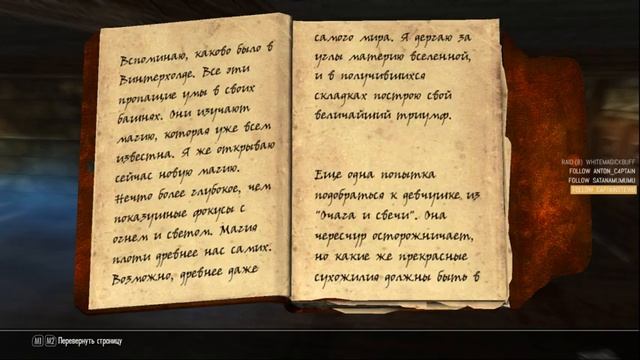 Вспоминаю, каково было в
Винтерхолде. Все эти
пропащие умы в своих
башнях. Они изучают
магию, которая уже всем
известна. Я же открываю
сейчас новую магию.
Нечто более глубокое, чем
показушные фокусы с
огнем и светом. Магия
плоти древнее нас самих.
Возможно, древнее даже
самого мира. Я дергаю за
углы материю вселенной,
и в получившихся
складках построю свой
величайший триумф.
Еще одна попытка
подобраться к девчушке из
"Очага и свечи". Она
чересчур осторожничает,
но какие же прекрасные
сухожилия должны быть в
RAID (8) WHITEMAGICKBUFF
FOLLOW ANTON_CAPTAIN
FOLLOW SATANAMUMUMU
M1 M2 Перевернуть страницу